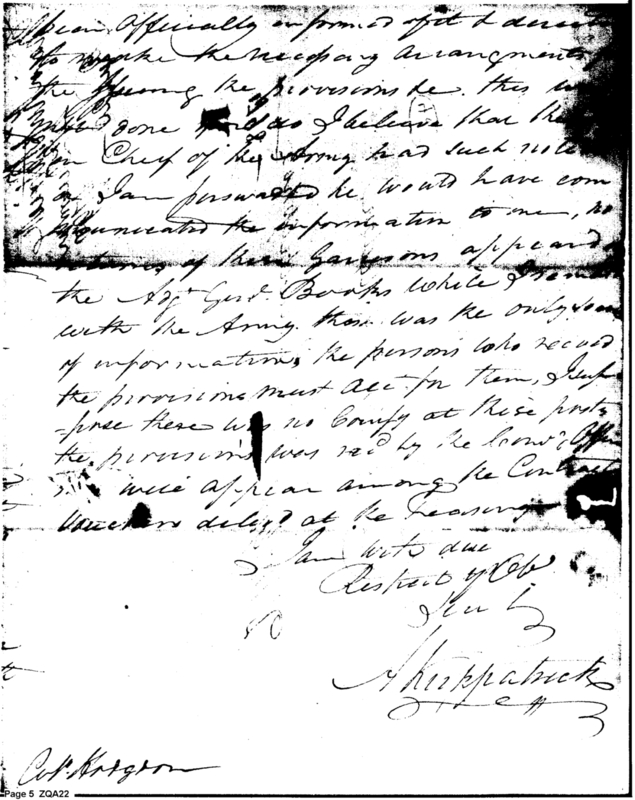 been Officially informed of it & direct
to make the necessary Arrangements
the Issuing the provisions &c. this
done I believe that the
in Cheif of the Army had such
I am perswaded he would have com
municated the information to me, no
returns of these Garrisons appeard
the Adjt Genl Books while I
with the Army. this was the only
of information, the persons who received
the provisions must Act for them, I sup
-pose there was no Comsy at these posts
the provisions was recd by the
will appear among the Contract
Vouchers at the Treasury
I am with due
Respect yr Ob
Servt
A Kirkpatrick
Colo. Hodgdon
Page 5 ZQA22